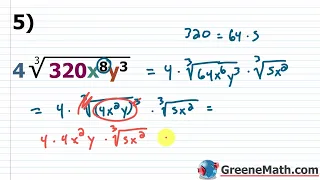 5)
320 = 64 · 5
4∛320x⁸y³ = 4 · ∛64x⁶y³ · ∛5x²
= 4 · ∛(4x²y)³ · ∛5x² =
4 · 4x²y · ∛5x² ·
GreeneMath.com